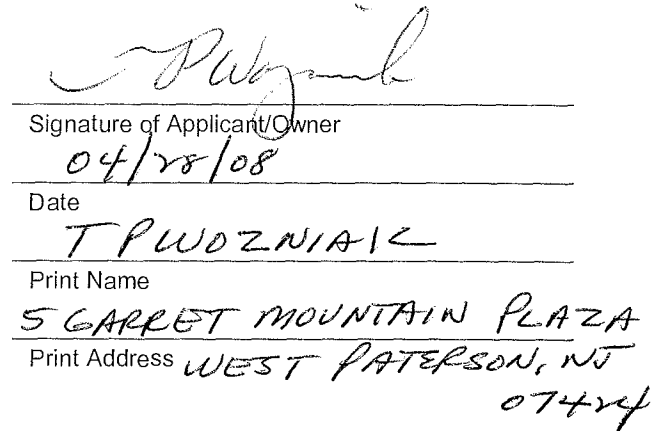 TPWozniak
Signature of Applicant/Owner
04/28/08
Date
T P WOZNIAK
Print Name
5 GARRET MOUNTAIN PLAZA
Print Address WEST PATERSON, NJ
07424